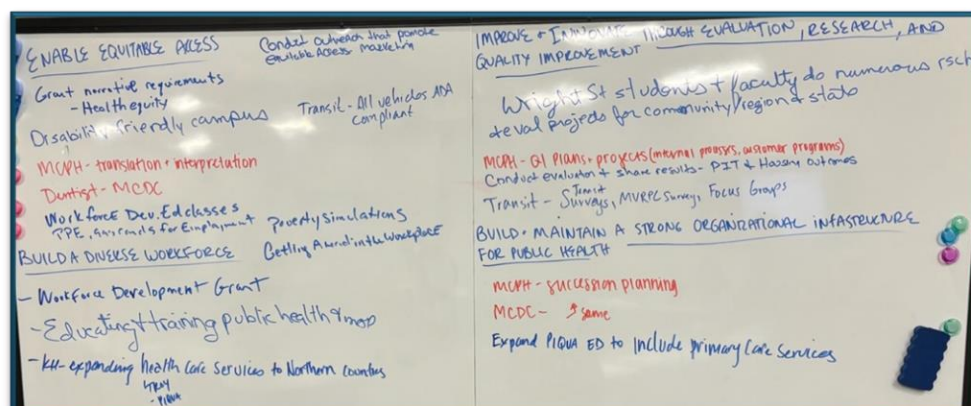 ENABLE EQUITABLE ACCESS
Conduct outreach that promote
equitable access marketing
Grant narrative requirements
- Health equity
Disability friendly campus
Transit - All vehicles ADA
compliant
MCPH - translation + interpretation
Dentist - MCDC
Workforce Dev. Ed classes
PPE, for Employment
Poverty simulations
Getting Ahead in the Workplace
BUILD A DIVERSE WORKFORCE
- Workforce Development Grant
- Educating & training public health &
- KH - expanding health care services to Northern counties
- TROY
- PIQUA
IMPROVE + INNOVATE THROUGH EVALUATION, RESEARCH, AND
QUALITY IMPROVEMENT
Wright St students + faculty do numerous rsch
& eval projects for community/region & state
MCPH - QI Plans + projects (internal process, customer programs)
Conduct evaluation & share results - PIT & Housing outcomes
Transit - Transit Surveys, MVRPC Survey, Focus Groups
BUILD + MAINTAIN A STRONG ORGANIZATIONAL INFASTRUCTURE
FOR PUBLIC HEALTH
MCPH - succession planning
MCDC - same
Expand PIQUA ED to include primary care services